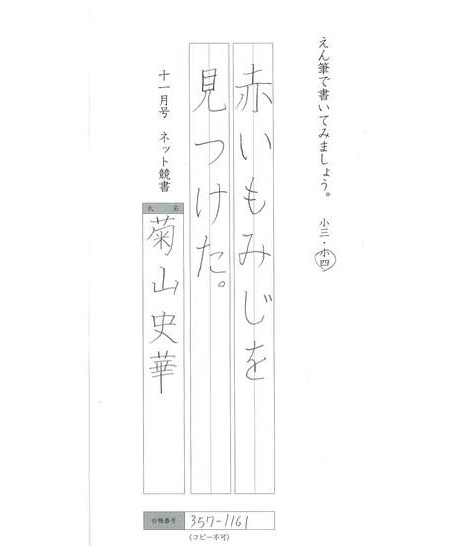 えん筆で書いてみましょう。 小三・小四
赤いもみじを
見つけた。
十一月号 ネット競書
氏 名
菊山史華
台帳番号 357-1161
(コピー不可)